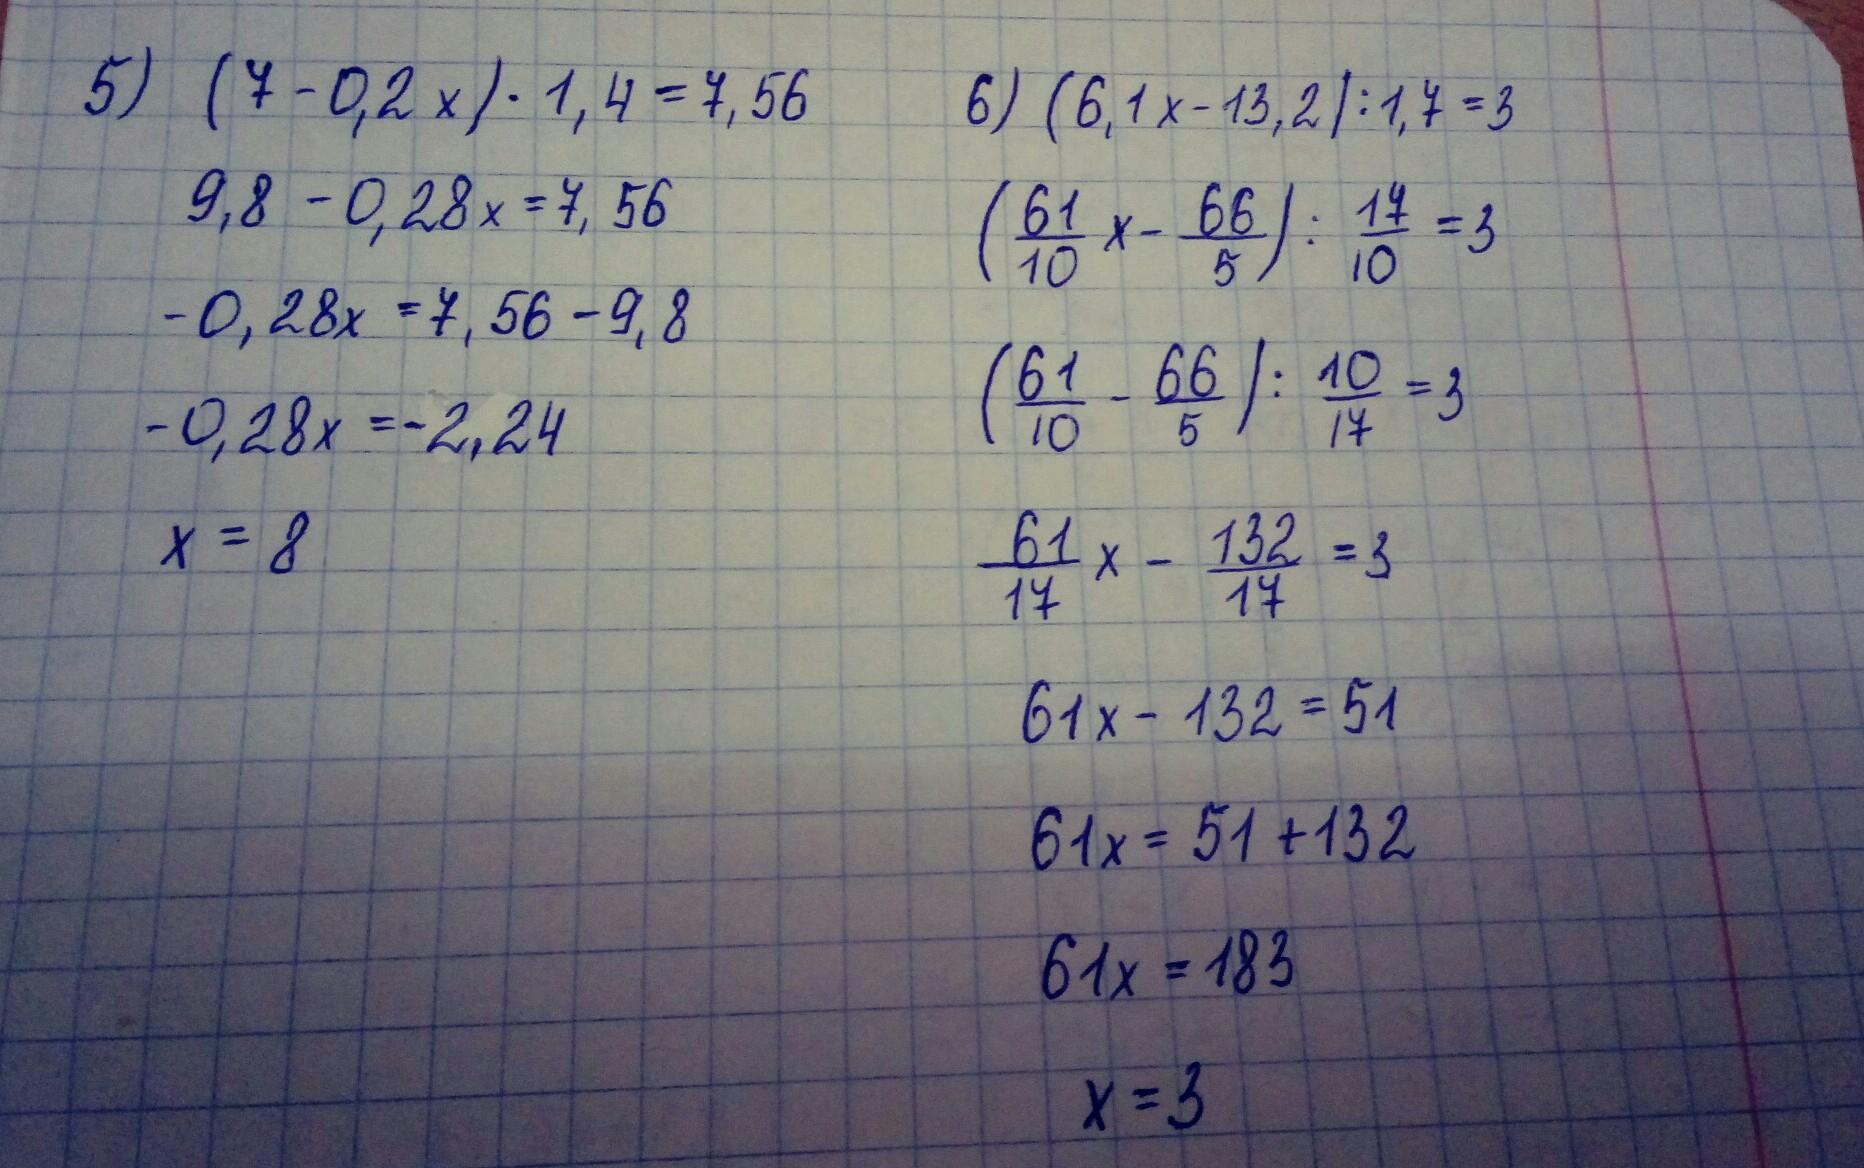 5) (7 - 0,2 x) · 1,4 = 7,56
9,8 - 0,28x = 7,56
-0,28x = 7,56 - 9,8
-0,28x = -2,24
x = 8
6) (6,1x - 13,2) : 1,7 = 3
(61/10 x - 66/5) : 17/10 = 3
(61/10 - 66/5) : 10/17 = 3
61/17 x - 132/17 = 3
61x - 132 = 51
61x = 51 + 132
61x = 183
x = 3